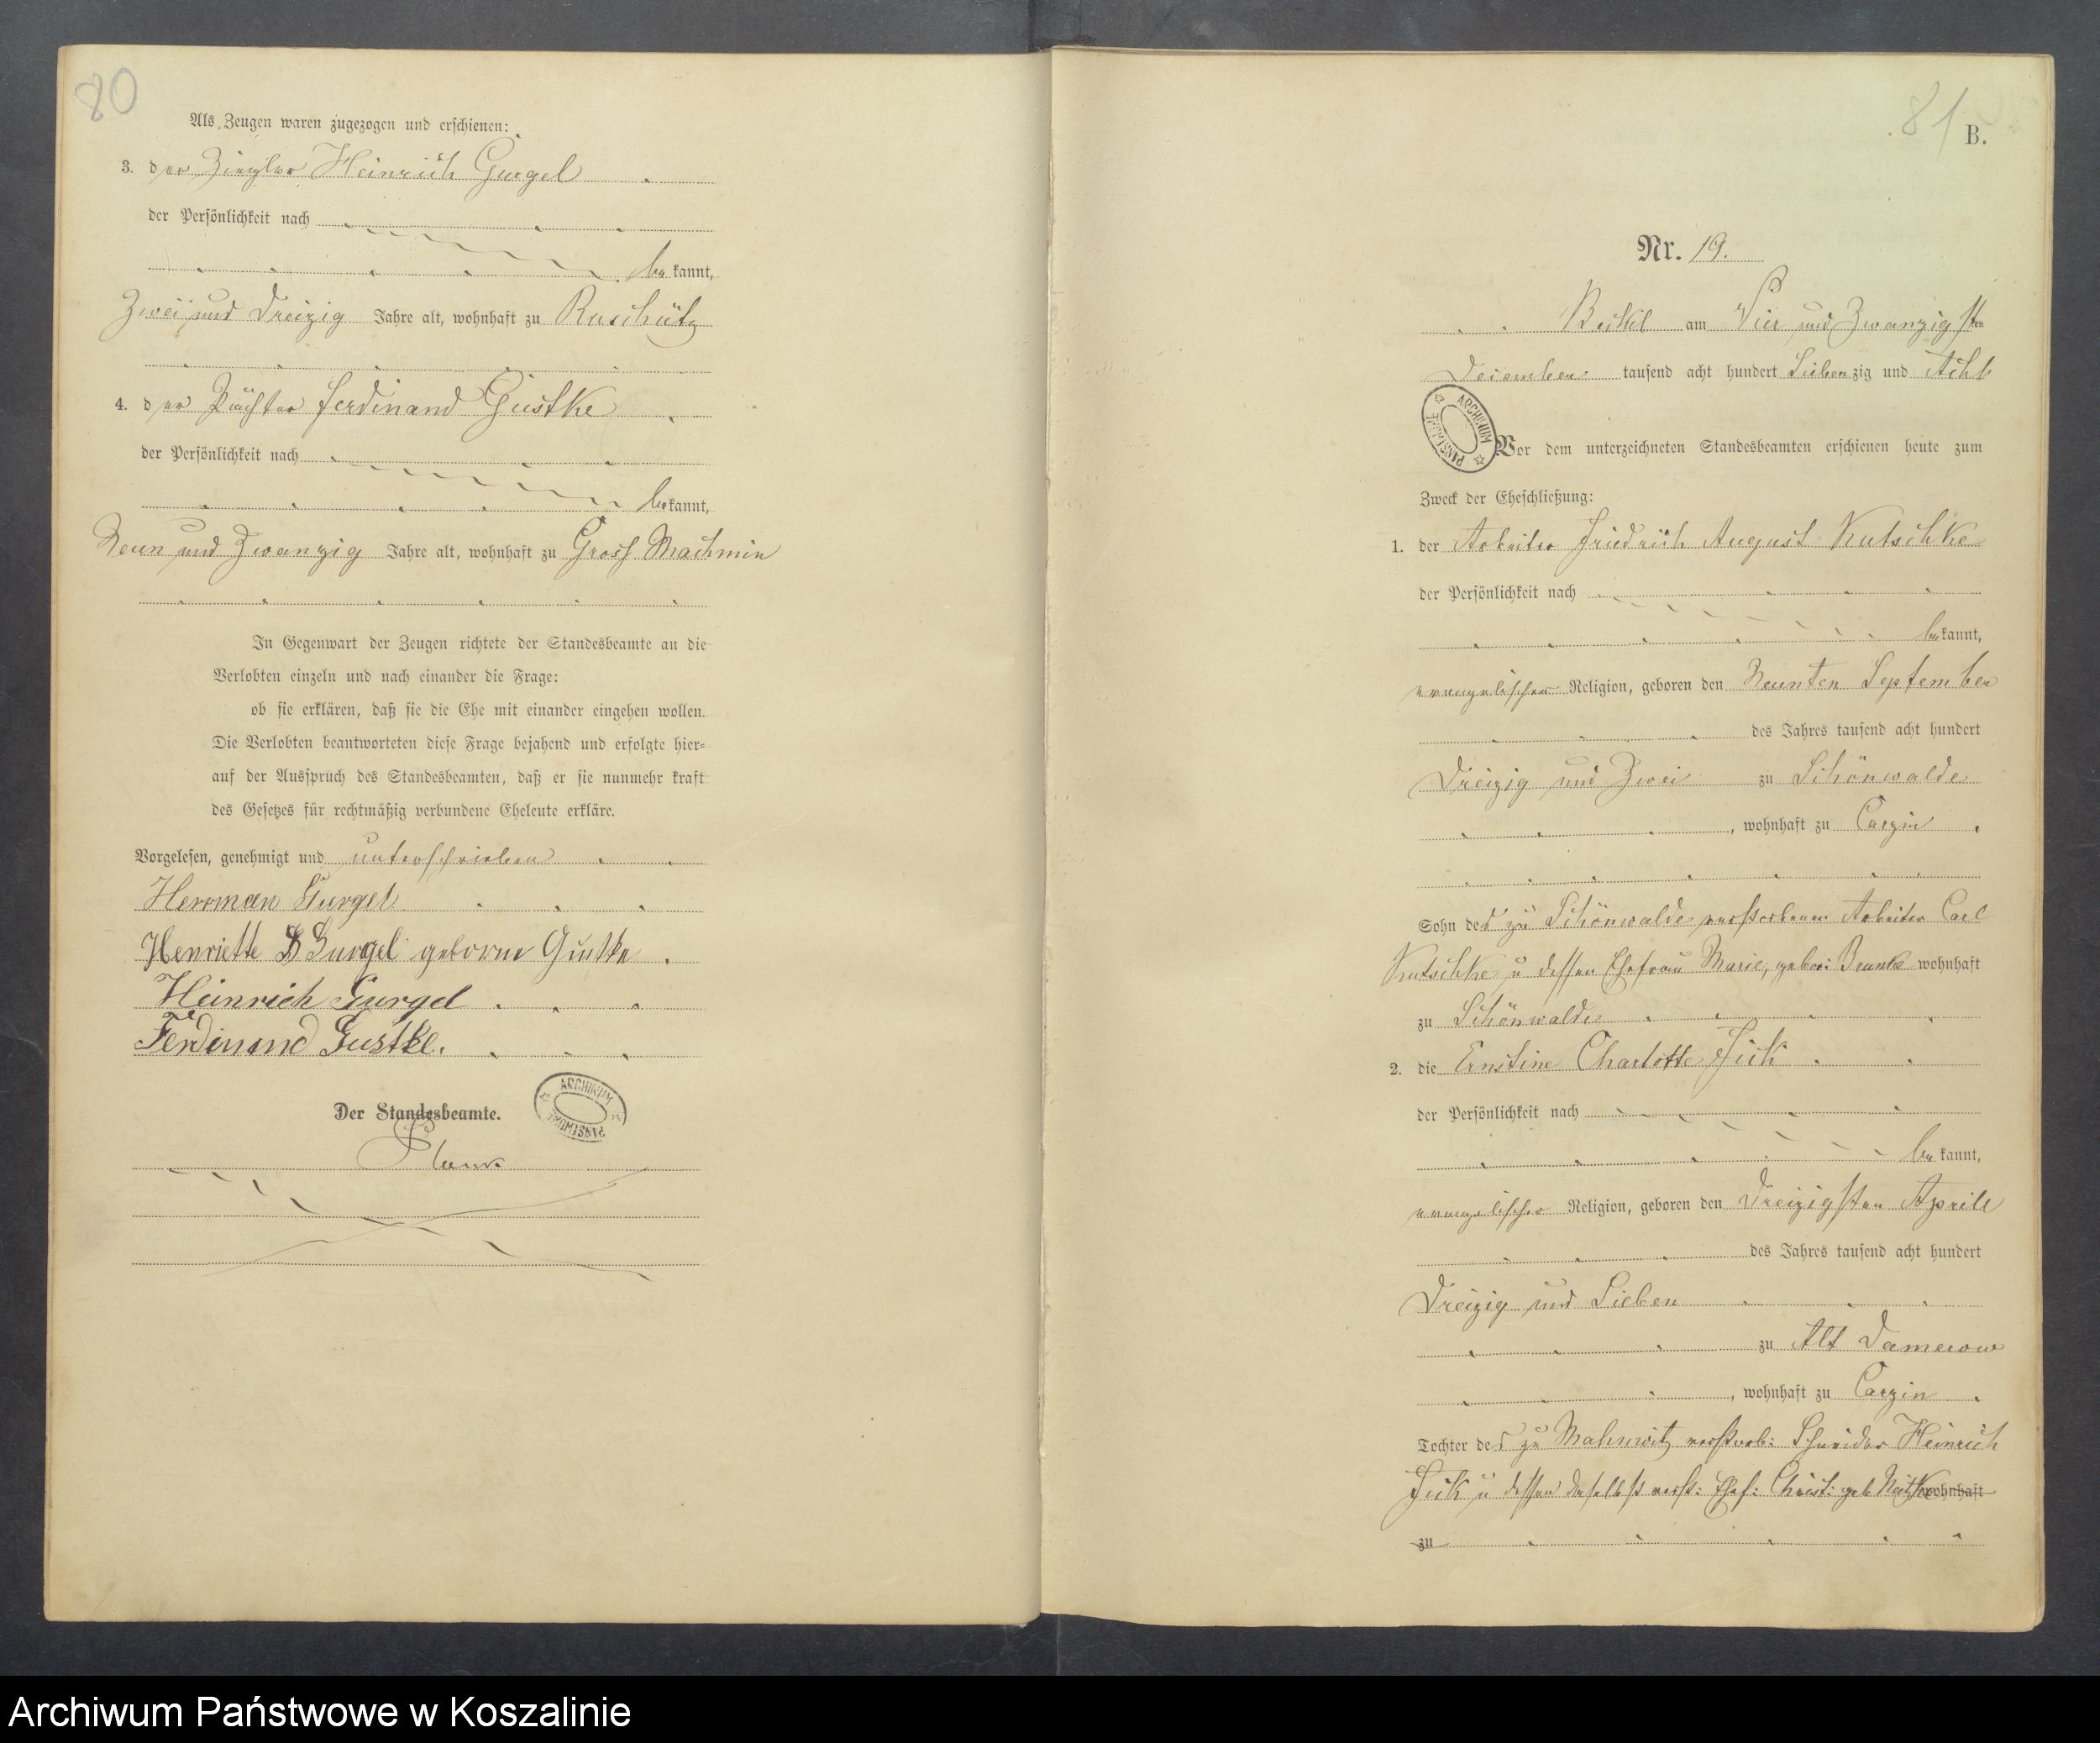 80
Als Zeugen waren zugezogen und erschienen:
3. der Ziegler Heinrich Gurgel
der Persönlichkeit nach
bekannt,
Zwei und Dreizig Jahre alt, wohnhaft zu Ruschütz
4. der Pächter Ferdinand Gustke
der Persönlichkeit nach
bekannt,
Neun und Zwanzig Jahre alt, wohnhaft zu Gross Machmin
In Gegenwart der Zeugen richtete der Standesbeamte an die
Verlobten einzeln und nach einander die Frage:
ob sie erklären, daß sie die Ehe mit einander eingehen wollen.
Die Verlobten beantworteten diese Frage bejahend und erfolgte hier-
auf der Ausspruch des Standesbeamten, daß er sie nunmehr kraft
des Gesetzes für rechtmäßig verbundene Eheleute erkläre.
Vorgelesen, genehmigt und unterschrieben
Herrman Gurgel
Henriette Gurgel geborne Gustke
Heinrich Gurgel
Ferdinand Gustke.
Der Standesbeamte.
ARCHIWUM PAŃSTWOWE
81
B.
Nr. 19.
Beckel am Vier und Zwanzigsten
December tausend acht hundert Siebenzig und Acht
ARCHIWUM PAŃSTWOWE
Vor dem unterzeichneten Standesbeamten erschienen heute zum
Zweck der Eheschließung:
1. der Arbeiter Friedrich August Kutschke
der Persönlichkeit nach
bekannt,
evangelischer Religion, geboren den Neunten September
des Jahres tausend acht hundert
Dreizig und Zwei zu Schönwalde
, wohnhaft zu Carzin
Sohn des zu Schönwalde verstorbenen Arbeiter Carl
Kutschke u dessen Ehefrau Marie, gebor: wohnhaft
zu Schönwalde
2. die Ernstine Charlotte Fick
der Persönlichkeit nach
bekannt,
evangelischer Religion, geboren den Dreizigsten Aprill
des Jahres tausend acht hundert
Dreizig und Sieben
zu Alt Damerow
, wohnhaft zu Carzin
Tochter des zu Mahnwitz verstorb: Schneider Heinrich
Fick u dessen daselbst verst: Ehef: Christ: geb wohnhaft
zu
Archiwum Państwowe w Koszalinie